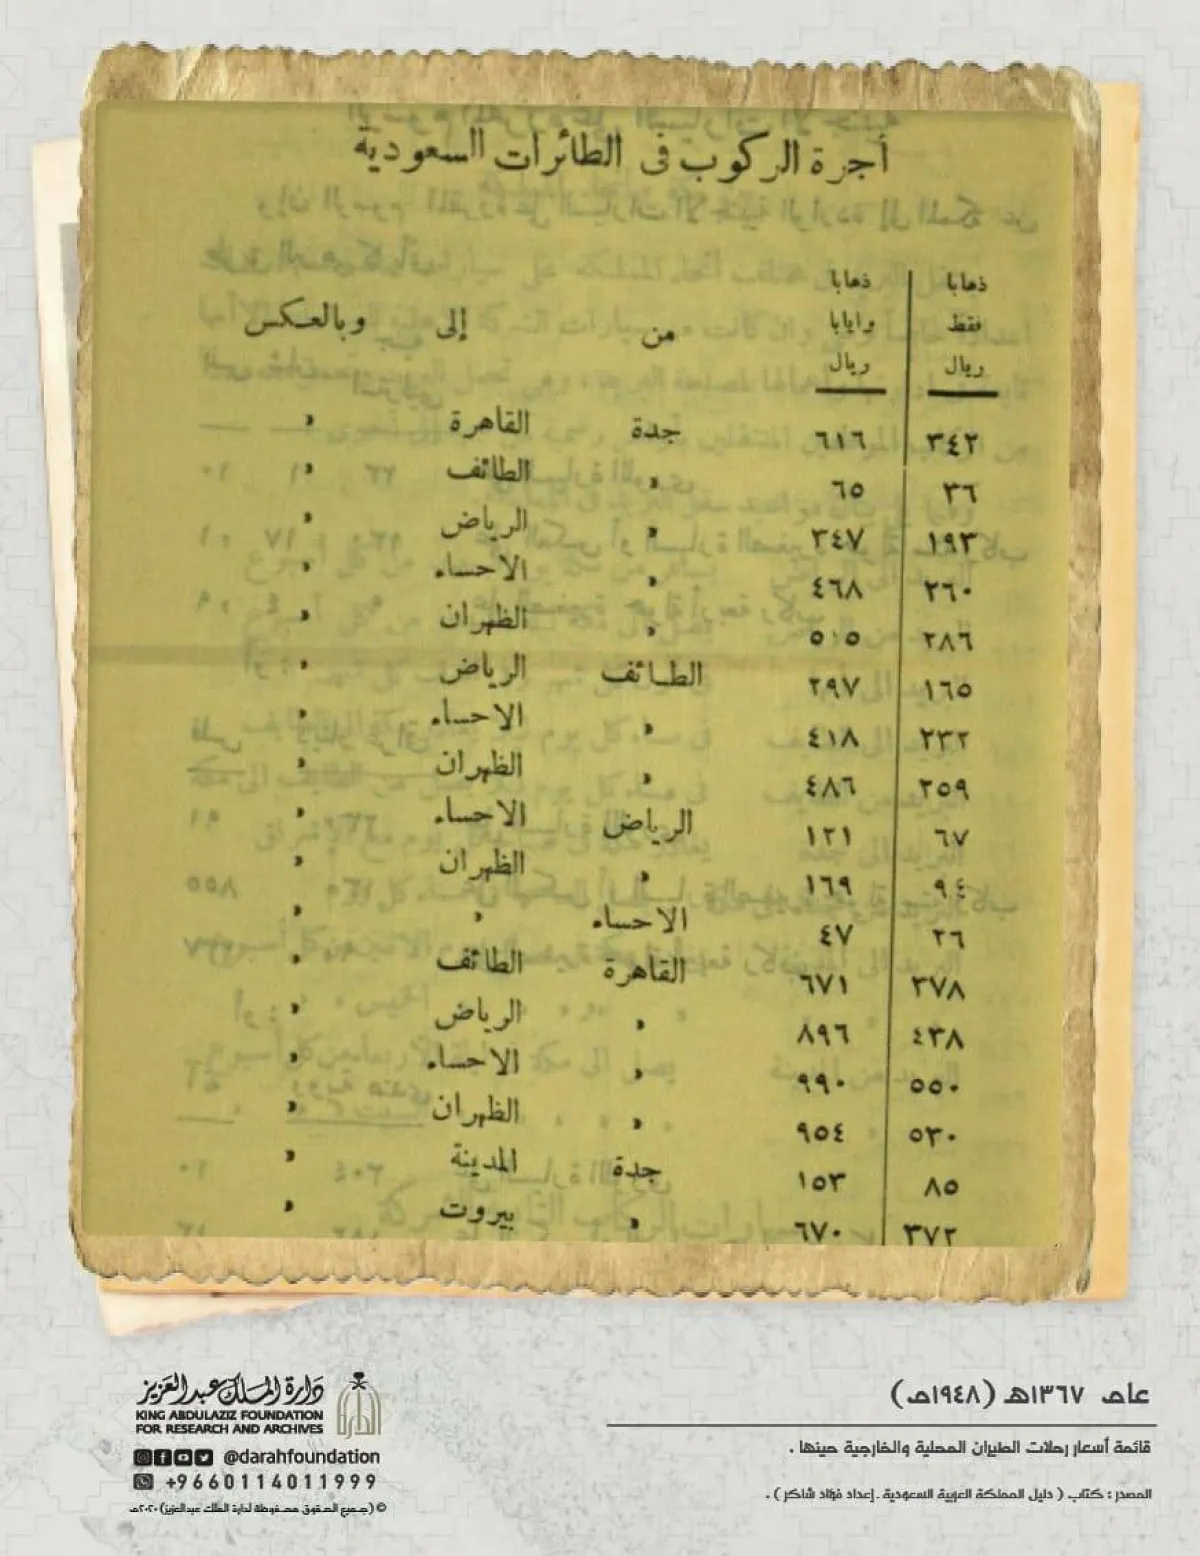 أجرة الركوب فى الطائرات السعودية
ذهابا ذهابا
فقط وايابا من إلى وبالعكس
ريال ريال
٣٤٢ ٦١٦ جدة القاهرة «
٣٦ ٦٥ « الطائف «
١٩٣ ٣٤٧ « الرياض «
٢٦٠ ٤٦٨ « الاحساء «
٢٨٦ ٥١٥ « الظهران «
١٦٥ ٢٩٧ الطائف الرياض «
٢٣٢ ٤١٨ « الاحساء «
٢٥٩ ٤٨٦ « الظهران «
٦٧ ١٢١ الرياض الاحساء «
٩٤ ١٦٩ « الظهران «
٢٦ ٤٧ الاحساء « «
٣٧٨ ٦٧١ القاهرة الطائف «
٤٣٨ ٨٩٦ « الرياض «
٥٥٠ ٩٩٠ « الاحساء «
٥٣٠ ٩٥٤ « الظهران «
٨٥ ١٥٣ جدة المدينة «
٣٧٢ ٦٧٠ « بيروت «
عام ١٣٦٧هـ (١٩٤٨م)
قائمة أسعار رحلات الطيران المحلية والخارجية حينها .
المصدر : كتاب ( دليل المملكة العربية السعودية . إعداد فؤاد شاكر ) .
دارة الملك عبدالعزيز
KING ABDULAZIZ FOUNDATION
FOR RESEARCH AND ARCHIVES
@darahfoundation
+9660114011999
© (جميع الحقوق محفوظة لدارة الملك عبدالعزيز) ٢٠٢٠م